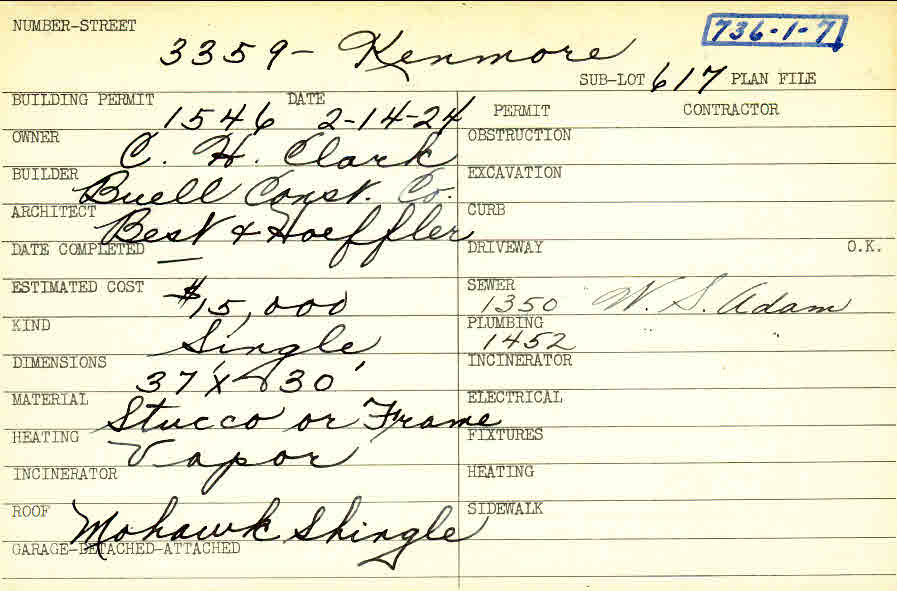 NUMBER-STREET 3359- Kenmore 736-1-7
SUB-LOT 617 PLAN FILE
BUILDING PERMIT 1546 DATE 2-14-24
OWNER C. H. Clark
BUILDER Buell Const. Co.
ARCHITECT Best & Hoeffler
DATE COMPLETED —
ESTIMATED COST $15,000
KIND Single
DIMENSIONS 37' X 30'
MATERIAL Stucco or Frame
HEATING Vapor
INCINERATOR
ROOF Mohawk Shingle
GARAGE-DETACHED-ATTACHED
PERMIT CONTRACTOR
OBSTRUCTION
EXCAVATION
CURB
DRIVEWAY O.K.
SEWER 1350 W. S. Adam
PLUMBING 1452 " "
INCINERATOR
ELECTRICAL
FIXTURES
HEATING
SIDEWALK